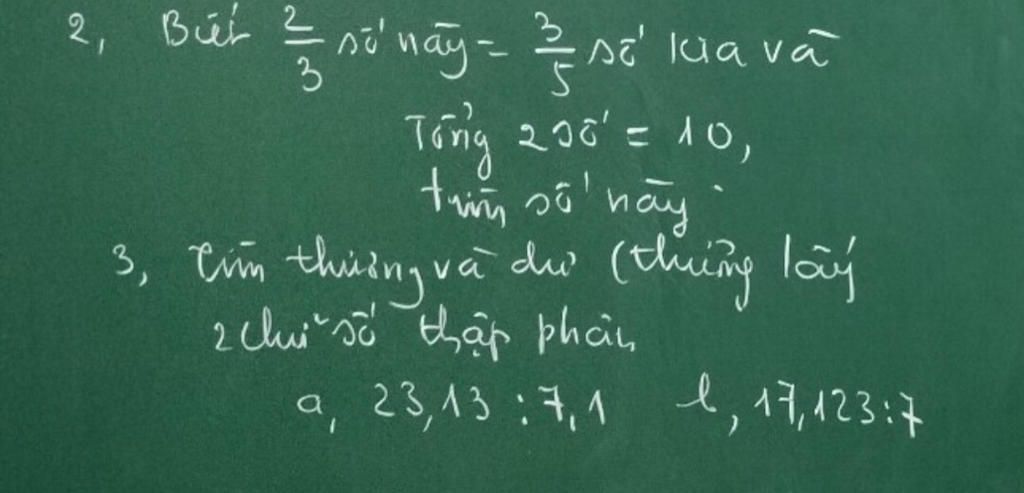 2, Biết 2/3 số này = 3/5 số kia và
Tổng 2 số = 10,
tìm số này.
3, Tìm thương và dư (thương lấy
2 chữ số thập phân
a, 23,13 : 7,1 b, 17,123 : 7